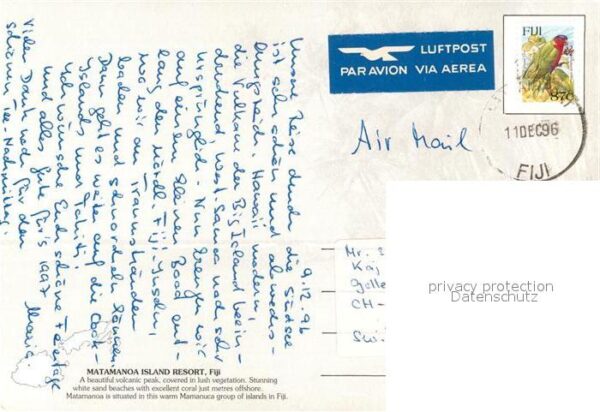 9.12.96
Unsere Reise durch die Südsee
ist sehr schön und abwechs-
lungsreich. Hawaii modern,
die Vulkane der Big Island beein-
druckend, West Samoa noch sehr
ursprünglich. Nun kreuzen wir
auf einem kleinen Boot ent-
lang den nördl. Fiji-Inseln,
wo wir an Traumstränden
baden und schnorcheln können.
Dann geht es weiter auf die Cook-
Islands und Tahiti.
Ich wünsche Euch schöne Festtage
und alles gute für's 1997
Vielen Dank noch für den
schönen Tee-Nachmittag!
LUFTPOST
PAR AVION VIA AEREA
FIJI
87c
11DEC96
FIJI
Air Mail
Mr.
Kaj
CH-
privacy protection
Datenschutz
MATAMANOA ISLAND RESORT, Fiji
A beautiful volcanic peak, covered in lush vegetation. Stunning
white sand beaches with excellent coral just metres offshore.
Matamanoa is situated in this warm Mamanuca group of islands in Fiji.